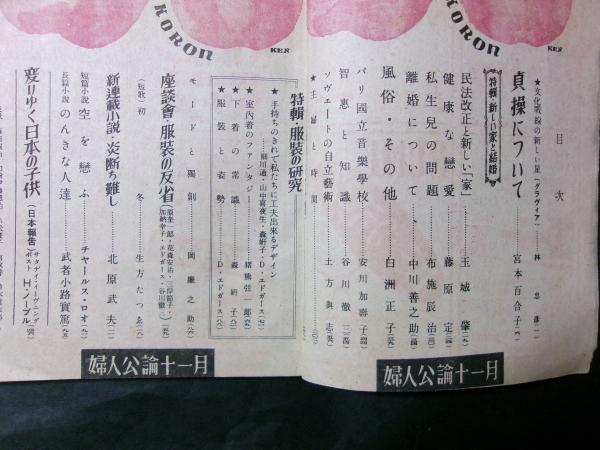 KORON
KEN
KORON
KEN
目次
★文化戦線の新しい星(グラヴィア)……林 忠彦
貞操について……宮本百合子
特輯・新しい家と結婚
民法改正と新しい「家」……玉城肇
健康な戀愛……藤原定
私生兒の問題……布施辰治
離婚について……中川善之助
風俗・その他……白洲正子
パリ國立音樂學校……安川加壽子
智惠と知識……谷川徹三
ソヴェートの自立藝術……土方與志
★主婦と時間
特輯・服裝の研究
★手持ちのきれで私たちに工夫出來るデザイン
……細川通・山中喜夜生・森軒子・D・エドガース
★室内着のファンタジー……猪熊弦一郎
★下着の常識……森軒子
★服裝と姿勢……D・エドガース
モードと獨創……岡鹿之助
座談會・服裝の反省
(短歌) 初冬……生方たつゑ
新連載小說・炎斷ち難し……北原武夫
短篇小說 空を戀ふ……チャールス・ロオ
長篇小說 のんきな人達……武者小路實篤
變りゆく日本の子供(日本報告)
サタデイ・イーヴニング・ポスト H・ノーブル
婦人公論十一月
婦人公論十一月